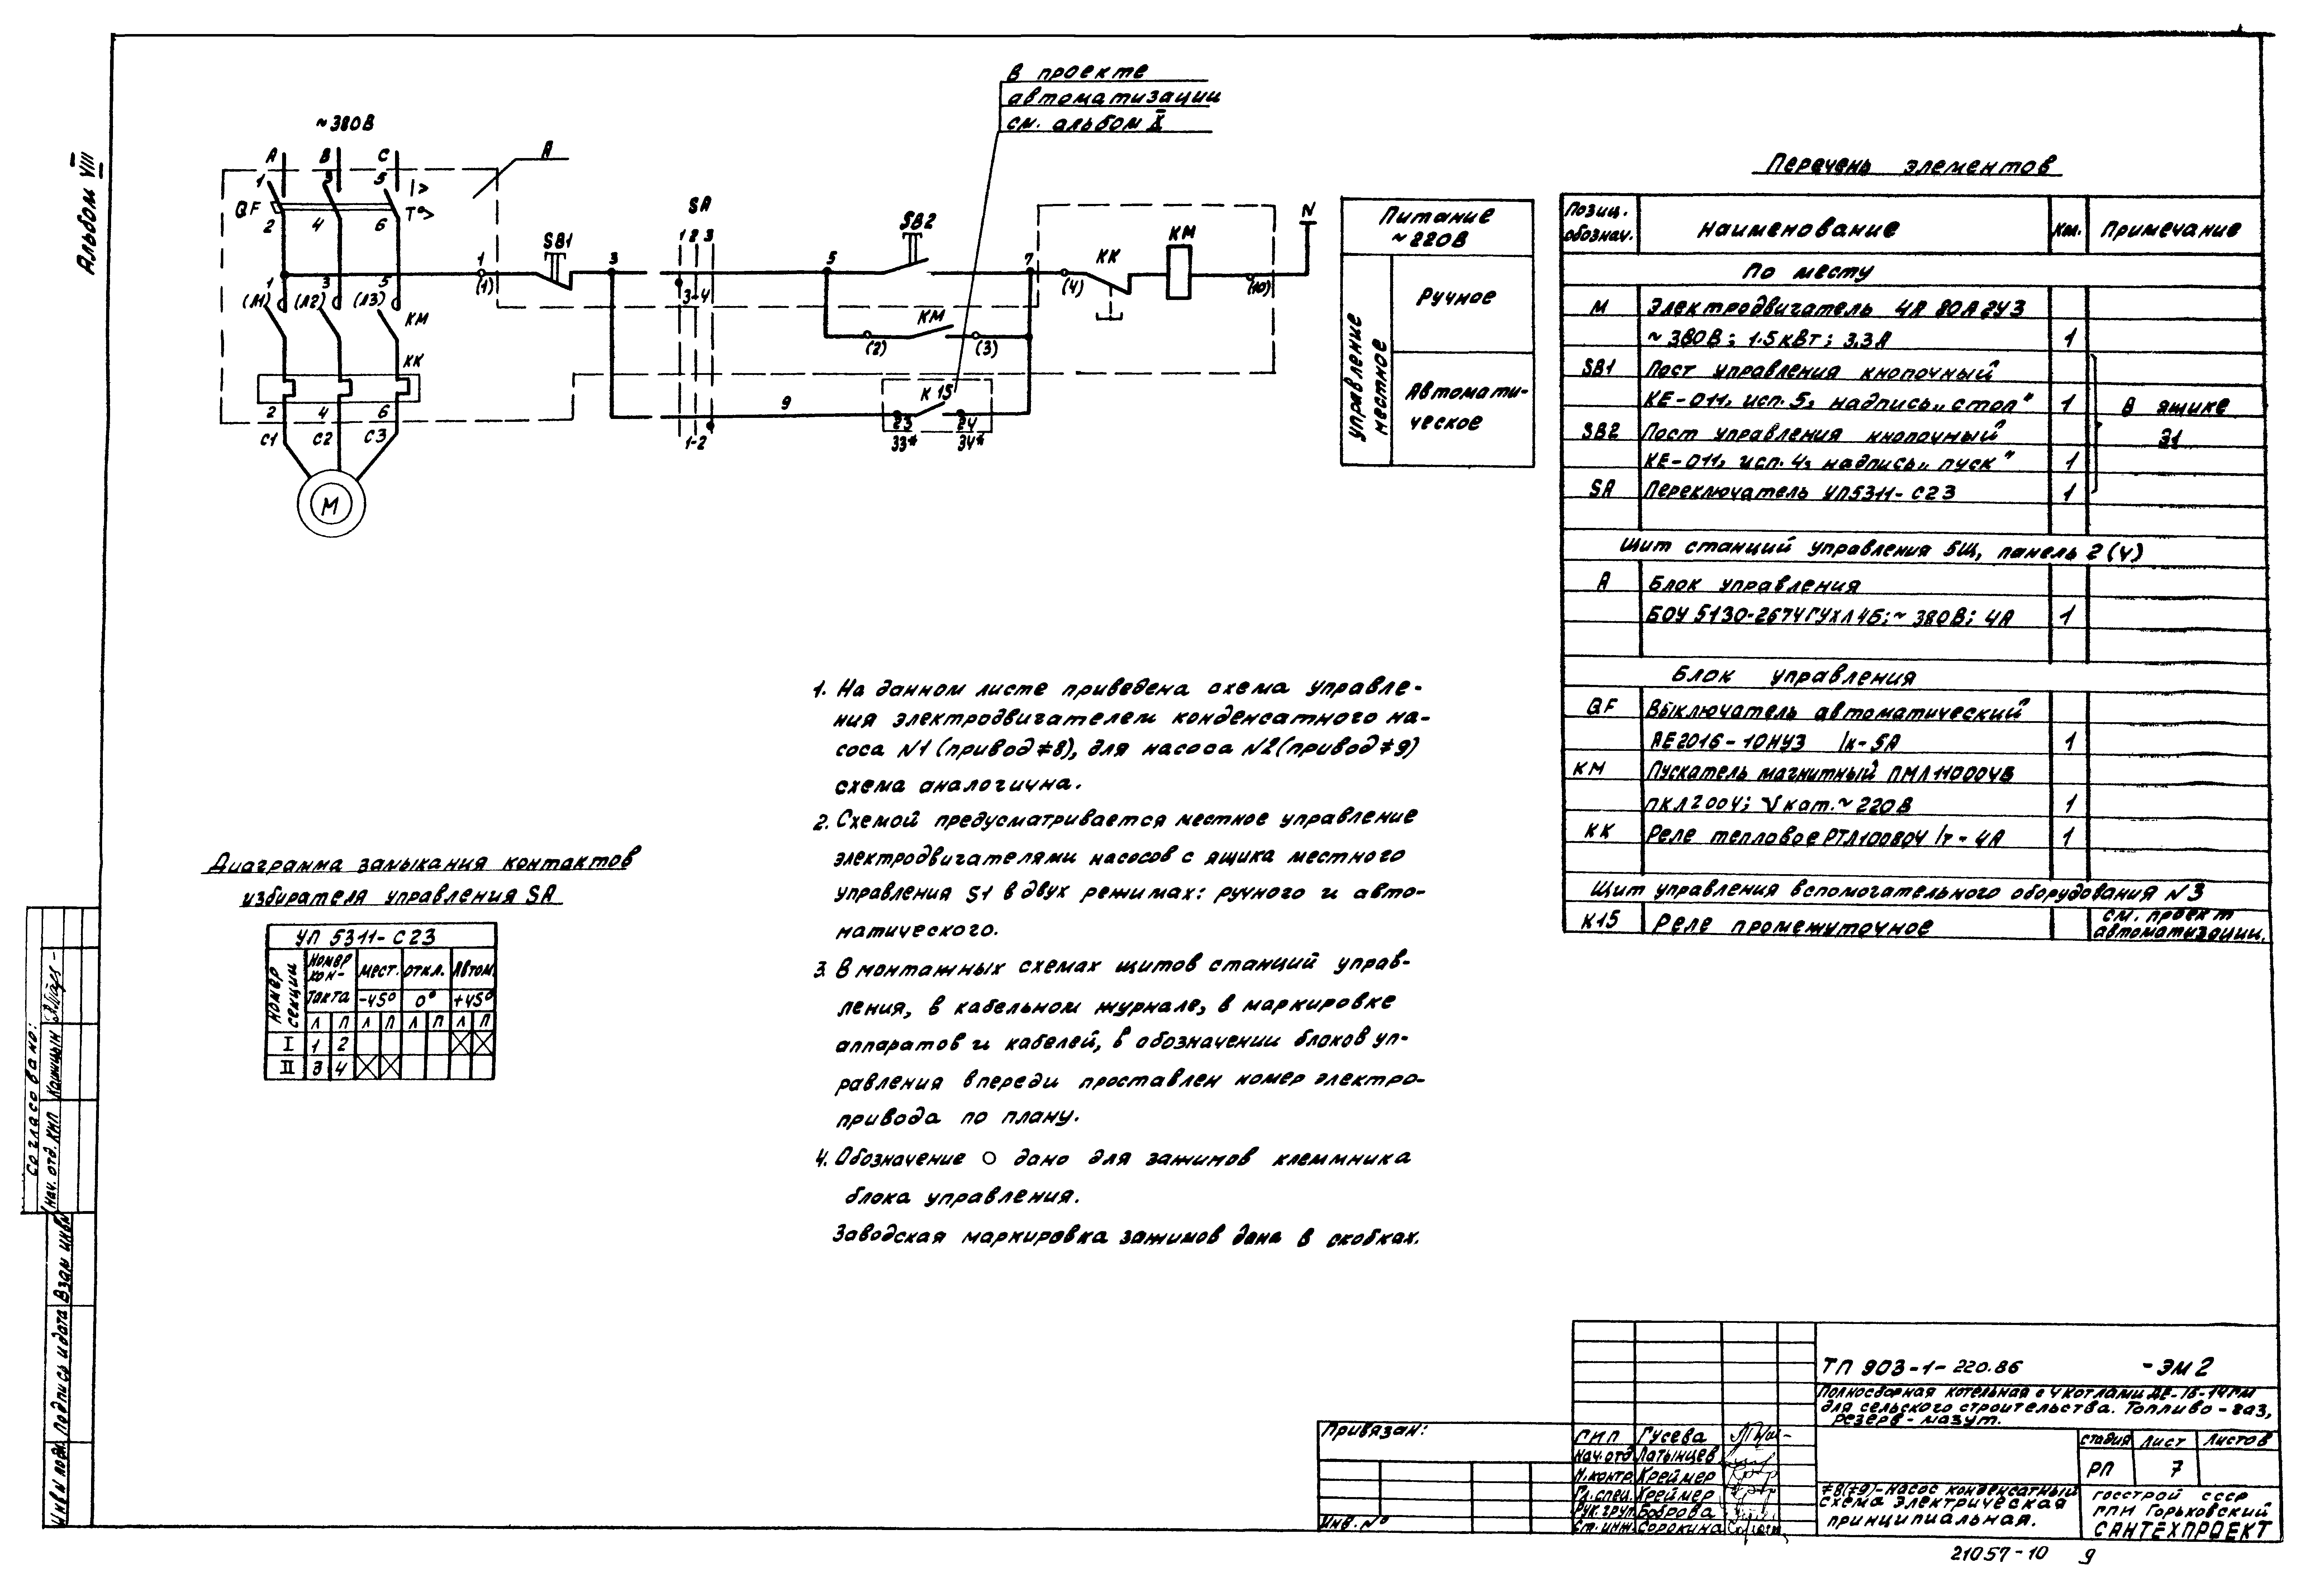 Альбом VIII
В проекте
автоматизации
см. альбом X
~380В
А В С
А
1 3 5
I>
QF
T°>
2 4 6
SB1
SA
1 2 3
SB2
KK
KM
N
1
(1)
3
3-4
5
7
(4)
(10)
1 3 5
(Л1) (Л2) (Л3)
KM
KM
(2) (3)
KK
K15
9
23 24
33* 34*
1-2
2 4 6
С1 С2 С3
М
Питание
~220В
Управление
местное
Ручное
Автомати-
ческое
Перечень элементов
Позиц. обознач. Наименование Кол. Примечание
По месту
М Электродвигатель 4А 80А2У3
~380В; 1.5кВт; 3.3А 1
SB1 Пост управления кнопочный
КЕ-011, исп. 5, надпись „стоп" 1 В ящике
SB2 Пост управления кнопочный Э1
КЕ-011, исп. 4, надпись „пуск" 1
SA Переключатель УП5311-С23 1
Щит станций управления 5Щ, панель 2(4)
А Блок управления
БОУ 5130-2674ГУХЛ4Б; ~380В; 4А 1
Блок управления
QF Выключатель автоматический
АЕ2016-10НУЗ Iк-5А 1
KM Пускатель магнитный ПМЛ110004В
ПКЛ2004; Vкат.~220В 1
KK Реле тепловое РТЛ100804 Iт-4А 1
Щит управления вспомогательного оборудования N3
K15 Реле промежуточное см. проект автоматизации.
1. На данном листе приведена схема управле-
ния электродвигателем конденсатного на-
соса N1 (привод ≠8), для насоса N2 (привод ≠9)
схема аналогична.
2. Схемой предусматривается местное управление
электродвигателями насосов с ящика местного
управления S1 в двух режимах: ручного и авто-
матического.
3. В монтажных схемах щитов станций управ-
ления, в кабельном журнале, в маркировке
аппаратов и кабелей, в обозначении блоков уп-
равления впереди проставлен номер электро-
привода по плану.
4. Обозначение О дано для зажимов клеммника
блока управления.
Заводская маркировка зажимов дана в скобках.
Диаграмма замыкания контактов
избирателя управления SA
УП 5311-С23
Номер секции
Номер кон-такта мест. откл. Автом.
-45° 0° +45°
Л П Л П Л П Л П
I 1 2
II 3 4
Согласовано:
Нач. отд. КИП
Взам инв N
Подпись и дата
Инв N подл.
Привязан:
Инв. №
ТП 903-1-220.86 -ЭМ2
Полносборная котельная с 4 котлами ДЕ-16-14ГМ
для сельского строительства. Топливо-газ,
резерв-мазут.
ГИП Гусева
Нач.отд Латынцев
Н.контр. Креймер
Гл.спец. Креймер
Рук.груп. Боброва
Ст.инж. Сорокина
стадия Лист Листов
РП 7
≠8(≠9)-Насос конденсатный
схема электрическая
принципиальная.
Госстрой СССР
ГПИ Горьковский
САНТЕХПРОЕКТ
21057-10 9